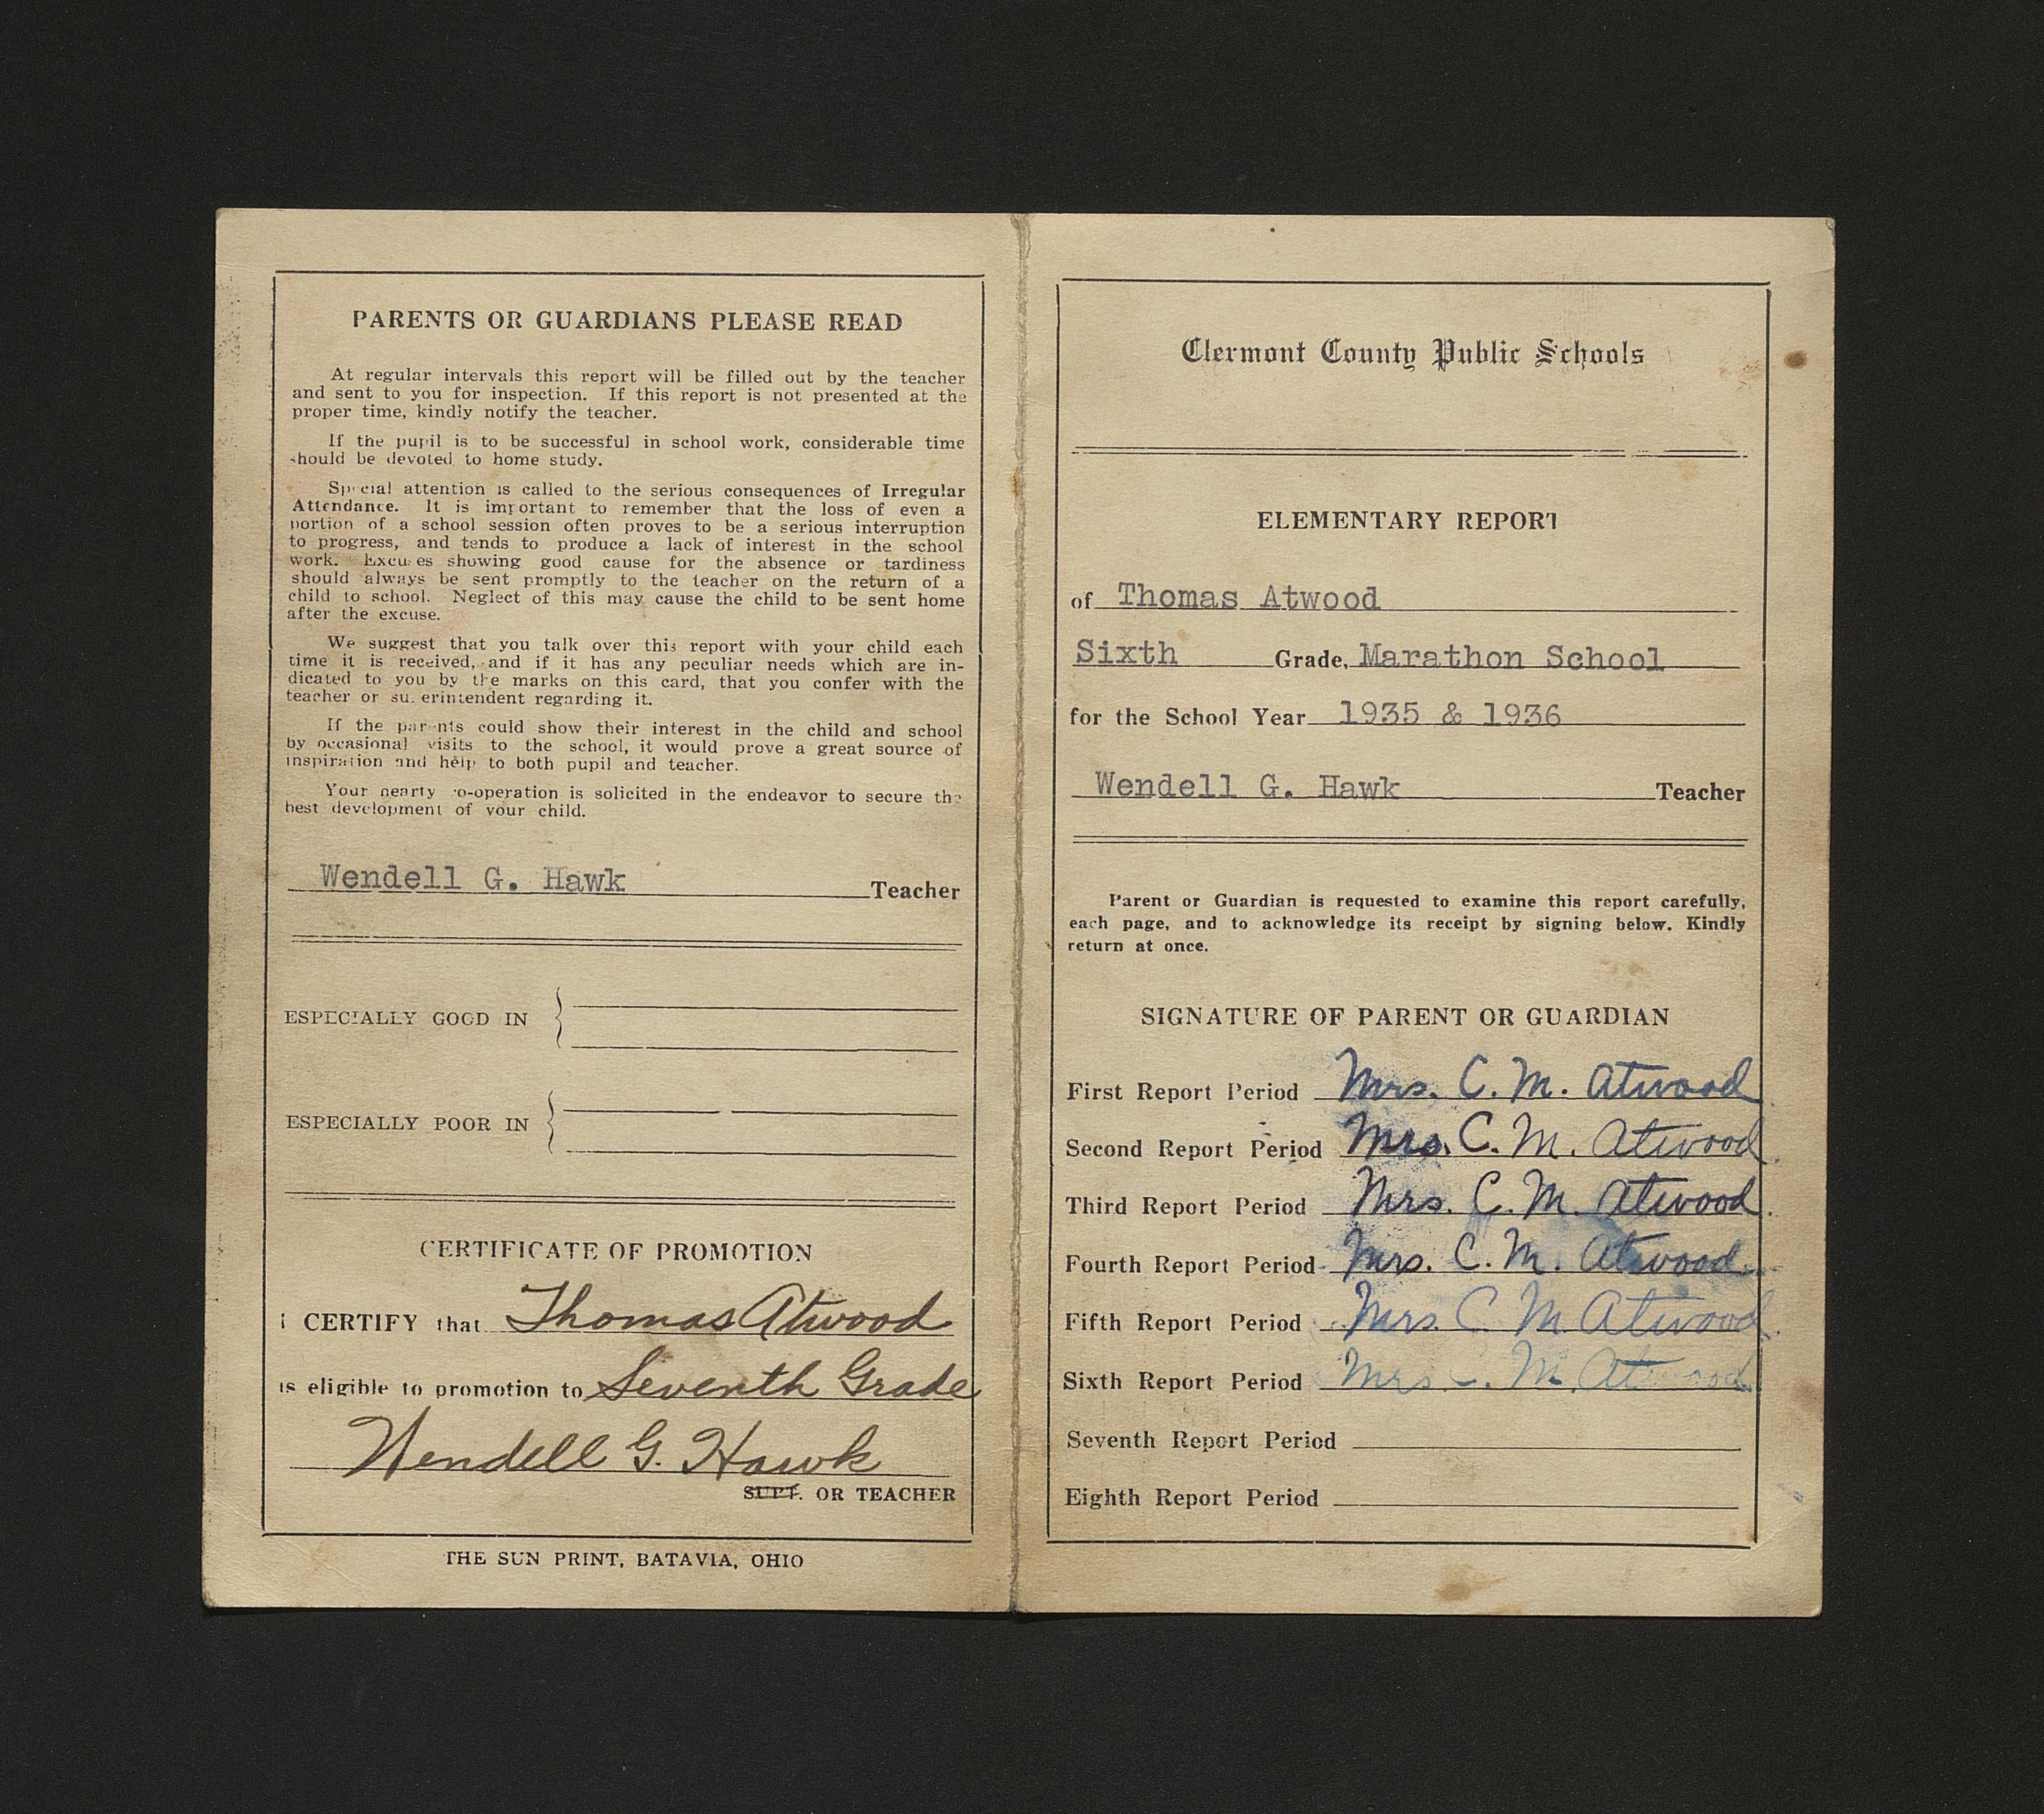 PARENTS OR GUARDIANS PLEASE READ
At regular intervals this report will be filled out by the teacher
and sent to you for inspection. If this report is not presented at the
proper time, kindly notify the teacher.
If the pupil is to be successful in school work, considerable time
should be devoted to home study.
Special attention is called to the serious consequences of Irregular
Attendance. It is important to remember that the loss of even a
portion of a school session often proves to be a serious interruption
to progress, and tends to produce a lack of interest in the school
work. Excuses showing good cause for the absence or tardiness
should always be sent promptly to the teacher on the return of a
child to school. Neglect of this may cause the child to be sent home
after the excuse.
We suggest that you talk over this report with your child each
time it is received, and if it has any peculiar needs which are in-
dicated to you by the marks on this card, that you confer with the
teacher or superintendent regarding it.
If the parents could show their interest in the child and school
by occasional visits to the school, it would prove a great source of
inspiration and help to both pupil and teacher.
Your hearty co-operation is solicited in the endeavor to secure the
best development of your child.
Wendell G. Hawk Teacher
ESPECIALLY GOOD IN
ESPECIALLY POOR IN
CERTIFICATE OF PROMOTION
I CERTIFY that Thomas Atwood
is eligible to promotion to Seventh Grade
Wendell G. Hawk
SUPT. OR TEACHER
THE SUN PRINT, BATAVIA, OHIO
Clermont County Public Schools
ELEMENTARY REPORT
of Thomas Atwood
Sixth Grade, Marathon School
for the School Year 1935 & 1936
Wendell G. Hawk Teacher
Parent or Guardian is requested to examine this report carefully,
each page, and to acknowledge its receipt by signing below. Kindly
return at once.
SIGNATURE OF PARENT OR GUARDIAN
First Report Period Mrs. C. M. Atwood
Second Report Period Mrs. C. M. Atwood.
Third Report Period Mrs. C. M. Atwood.
Fourth Report Period Mrs. C. M. Atwood.
Fifth Report Period Mrs. C. M. Atwood.
Sixth Report Period Mrs. C. M. Atwood.
Seventh Report Period
Eighth Report Period